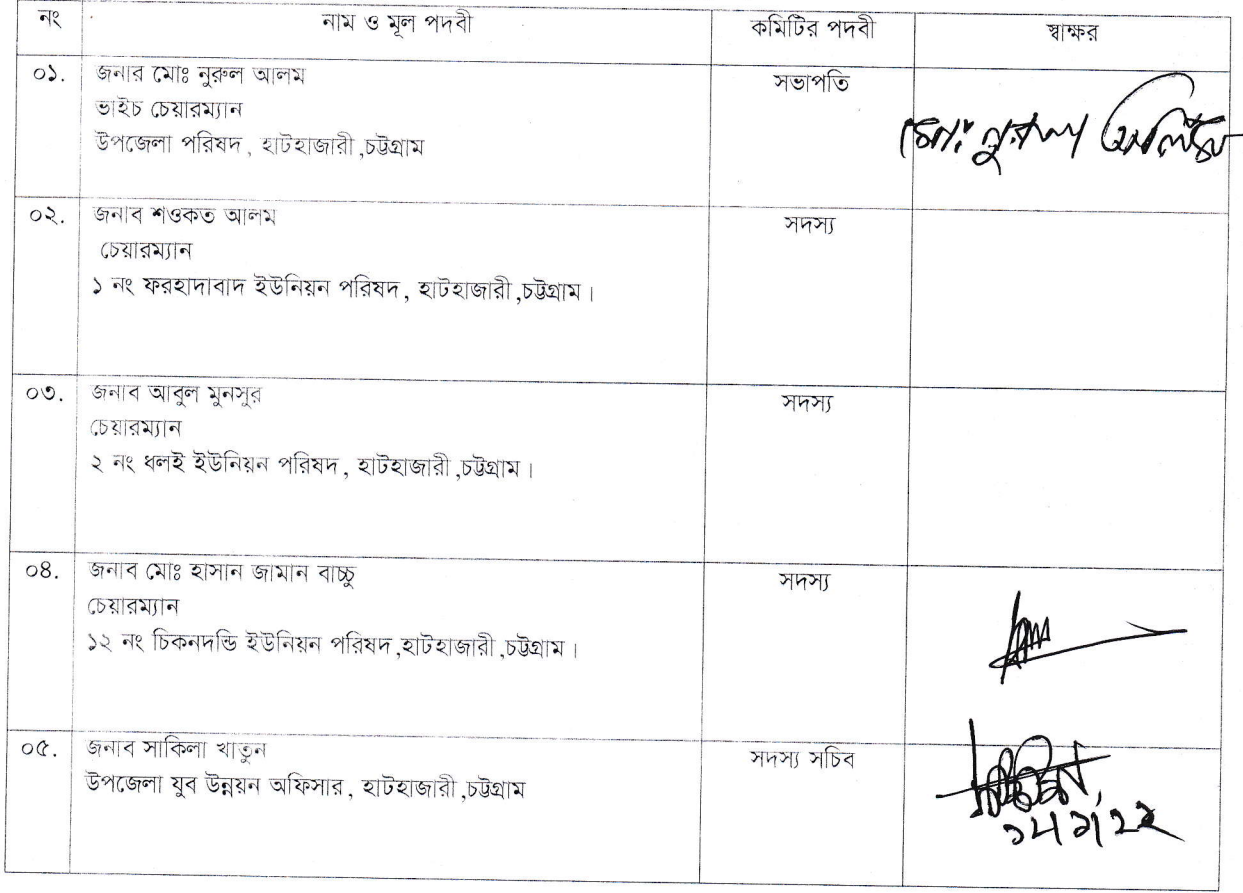 নং নাম ও মূল পদবী কমিটির পদবী স্বাক্ষর
০১. জনার মোঃ নুরুল আলম সভাপতি
ভাইচ চেয়ারম্যান
উপজেলা পরিষদ, হাটহাজারী,চট্টগ্রাম
মোঃ নুরুল আলম
০২. জনাব শওকত আলম সদস্য
চেয়ারম্যান
১ নং ফরহাদাবাদ ইউনিয়ন পরিষদ, হাটহাজারী,চট্টগ্রাম।
০৩. জনাব আবুল মুনসুর সদস্য
চেয়ারম্যান
২ নং ধলই ইউনিয়ন পরিষদ, হাটহাজারী,চট্টগ্রাম।
০৪. জনাব মোঃ হাসান জামান বাচ্চু সদস্য
চেয়ারম্যান
১২ নং চিকনদন্ডি ইউনিয়ন পরিষদ,হাটহাজারী,চট্টগ্রাম।
০৫. জনাব সাকিলা খাতুন সদস্য সচিব
উপজেলা যুব উন্নয়ন অফিসার, হাটহাজারী,চট্টগ্রাম